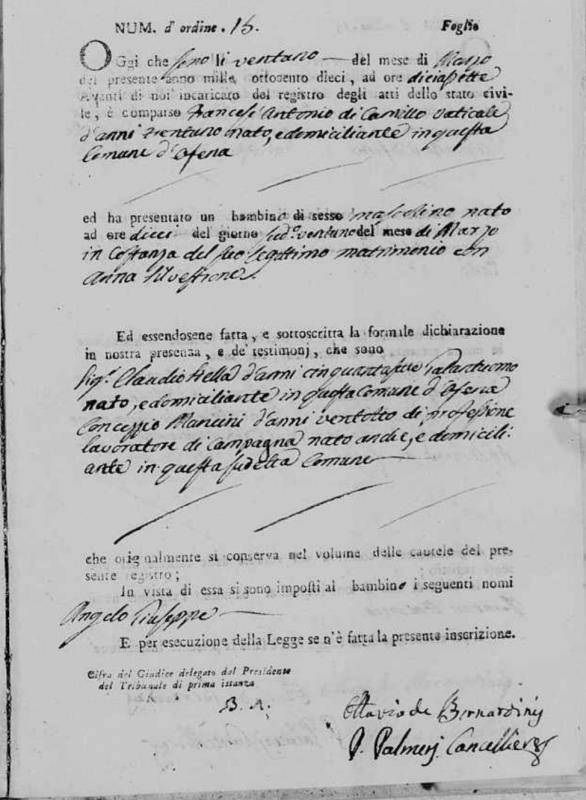 NUM. d'ordine. 15. Foglio
OGgi che sono li ventuno del mese di Marzo
del presente anno mille ottocento dieci, ad ore diciasette
avanti di noi incaricato del registro degli atti dello stato civi-
le, è comparso Francesc'Antonio di Camillo Vaticale
d'anni trentuno nato, e domiciliante in questa
Comune d'Ofena
ed ha presentato un bambino di sesso mascolino nato
ad ore dieci del giorno sud.o ventuno del mese di Marzo
in Costanza del suo legittimo matrimonio con
Anna Silvestrone.
Ed essendosene fatta, e sottoscritta la formale dichiarazione
in nostra presenza, e de' testimonj, che sono
Sig.r Claudio Stella d'anni cinquantasei Galantuomo
nato, e domiciliante in questa Comune d'Ofena
Concezio Mancini d'anni ventotto di professione
lavoratore di Campagna nato anche, e domicili-
ante in questa sudetta Comune
che originalmente si conserva nel volume delle cautele del pre-
sente registro;
In vista di essa si sono imposti al bambino i seguenti nomi
Angelo Giuseppe
E per esecuzione della Legge se n'è fatta la presente inscrizione.
Cifra del Giudice delegato dal Presidente
del Tribunale di prima istanza
B. A.
Ottavio de Bernardinis
P. Palmerj Cancelliere